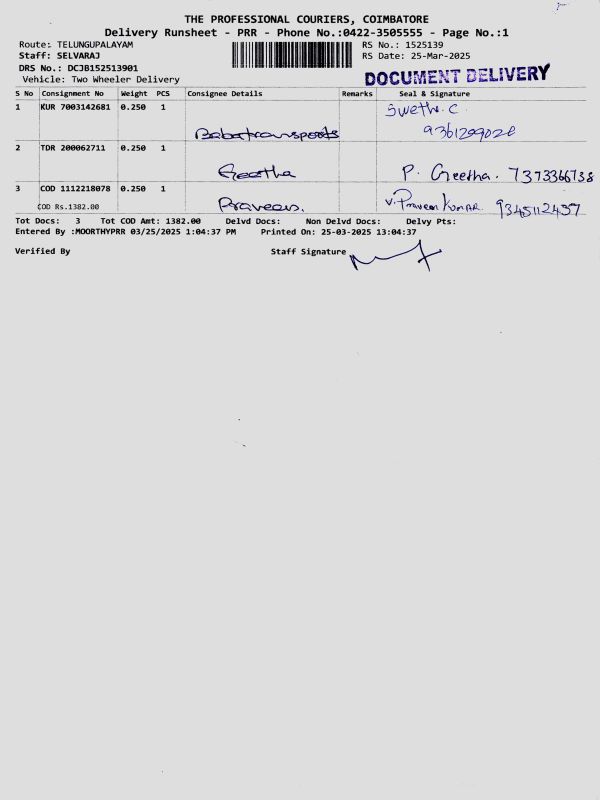 THE PROFESSIONAL COURIERS, COIMBATORE
Delivery Runsheet - PRR - Phone No.:0422-3505555 - Page No.:1
Route: TELUNGUPALAYAM RS No.: 1525139
Staff: SELVARAJ RS Date: 25-Mar-2025
DRS No.: DCJB152513901
Vehicle: Two Wheeler Delivery DOCUMENT DELIVERY
S No Consignment No Weight PCS Consignee Details Remarks Seal & Signature
1 KUR 7003142681 0.250 1 Swetha.C
Babatransports 9361299028
2 TDR 200062711 0.250 1
Geetha P. Geetha. 7373366738
3 COD 1112218078 0.250 1
COD Rs.1382.00 Praveen. V.Praveen Kumar 9345112437
Tot Docs: 3 Tot COD Amt: 1382.00 Delvd Docs: Non Delvd Docs: Delvy Pts:
Entered By :MOORTHYPRR 03/25/2025 1:04:37 PM Printed On: 25-03-2025 13:04:37
Verified By Staff Signature